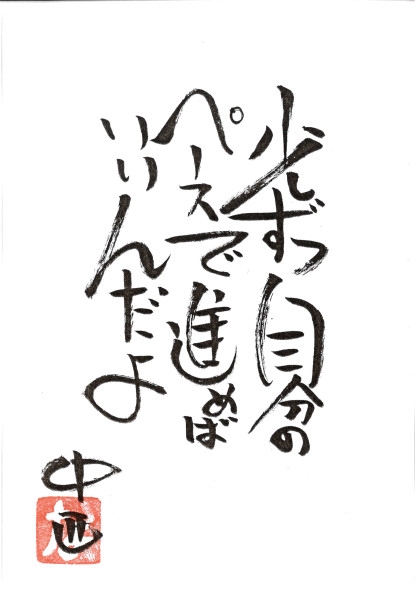 少しずつ自分の
ペースで進めば
いいんだよ